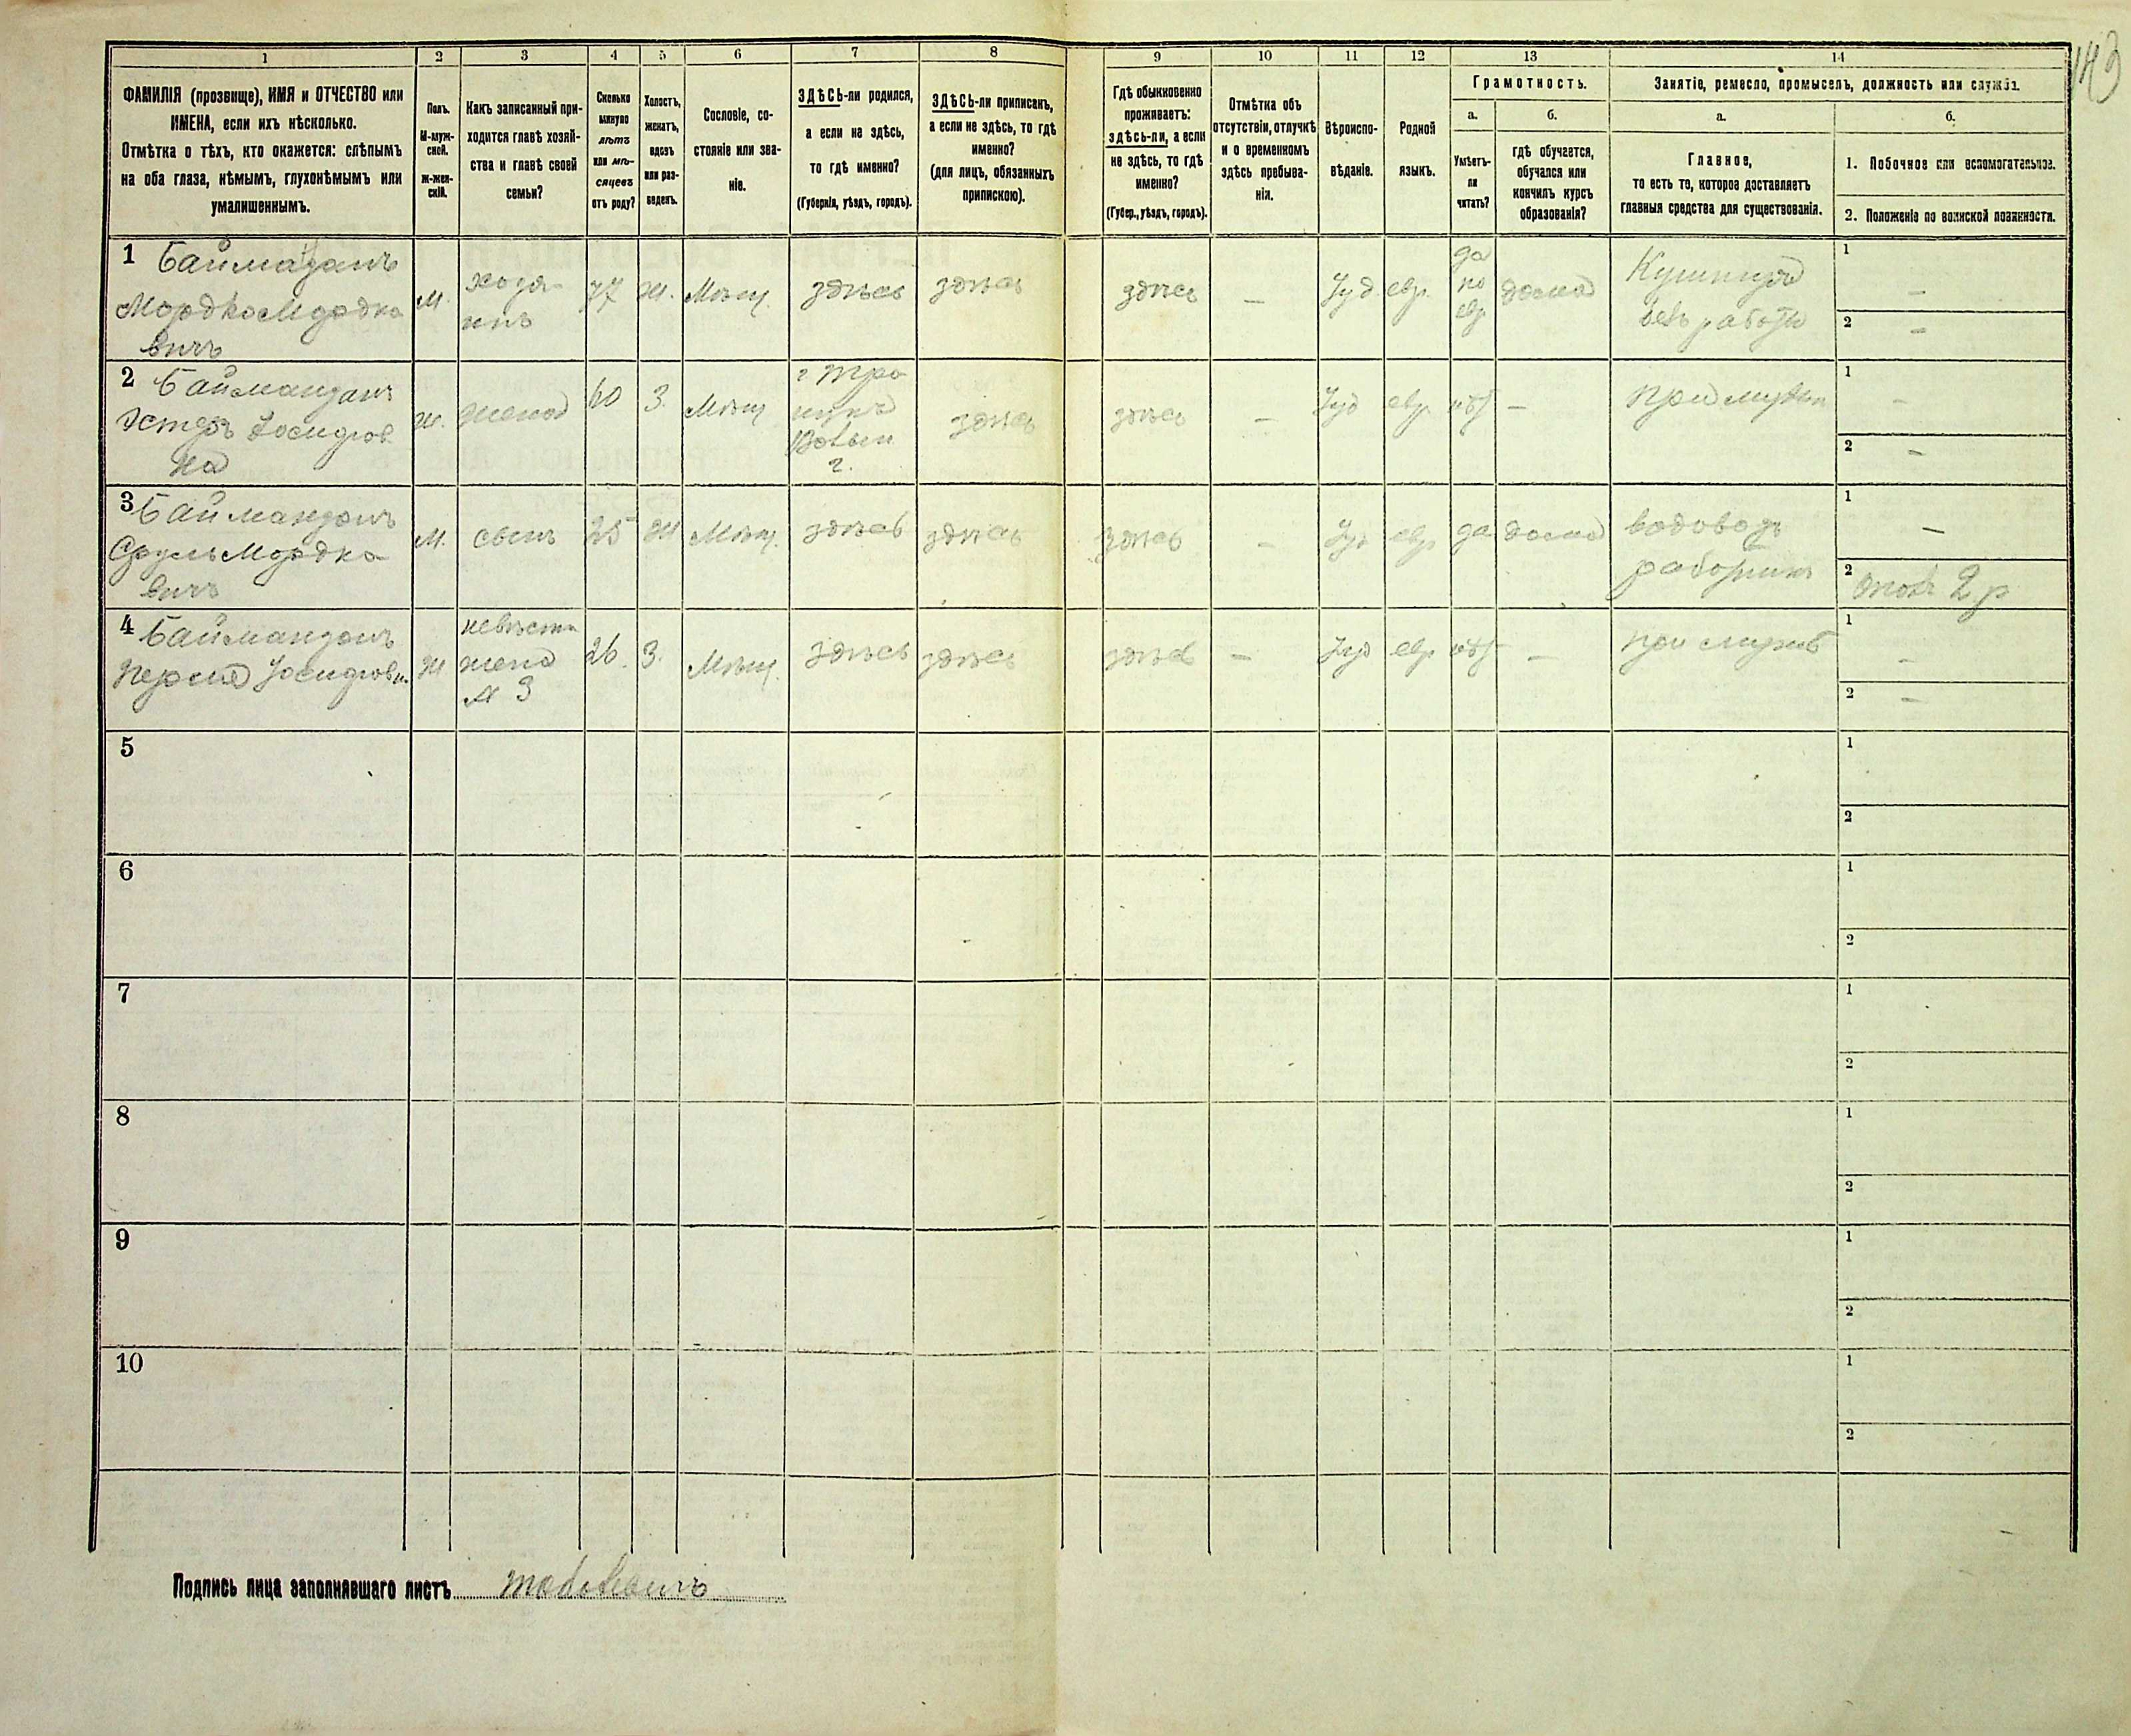 1 2 3 4 5 6 7 8 9 10 11 12 13 14
143
ФАМИЛІЯ (прозвище), ИМЯ и ОТЧЕСТВО или
ИМЕНА, если ихъ нѣсколько.
Отмѣтка о тѣхъ, кто окажется: слѣпымъ
на оба глаза, нѣмымъ, глухонѣмымъ или
умалишеннымъ.
Полъ.
М-муж-
ской.
Ж-жен-
скій.
Какъ записанный при-
ходится главѣ хозяй-
ства и главѣ своей
семьи?
Сколько
минуло
лѣтъ
или мѣ-
сяцевъ
отъ роду?
Холостъ,
женатъ,
вдовъ
или раз-
веденъ.
Сословіе, со-
стояніе или зва-
ніе.
ЗДѢСЬ-ли родился,
а если не здѣсь,
то гдѣ именно?
(Губернія, уѣздъ, городъ).
ЗДѢСЬ-ли приписанъ,
а если не здѣсь, то гдѣ
именно?
(для лицъ, обязанныхъ
припискою).
Гдѣ обыкновенно
проживаетъ:
здѣсь-ли, а если
не здѣсь, то гдѣ
именно?
(Губер., уѣздъ, городъ).
Отмѣтка объ
отсутствіи, отлучкѣ
и о временномъ
здѣсь пребыва-
ніи.
Вѣроиспо-
вѣданіе.
Родной
языкъ.
Грамотность.
а.
Умѣетъ-
ли
читать?
б.
гдѣ обучается,
обучался или
кончилъ курсъ
образованія?
Занятіе, ремесло, промыселъ, должность или служба.
а.
Главное,
то есть то, которое доставляетъ
главныя средства для существованія.
б.
1. Побочное или вспомогательное.
2. Положеніе по воинской повинности.
1 Байманданъ
Мордко Мордка
вичъ
М.
хозя-
инъ
77
Ж.
Мѣщ.
здѣсь
здѣсь
здѣсь
—
Іуд.
евр.
да
по
евр
дома
безъ работы
1 —
2 —
2 Байманданъ
Эстеръ Іосифов
на
Ж.
жена
60
З.
Мѣщ
Волын
г.
здѣсь
здѣсь
—
Іуд
евр.
нѣт
—
при мужѣ
1 —
2 —
3 Байманданъ
Сруль Мордка
вичъ
М.
сынъ
25
Ж
Мѣщ.
здѣсь
здѣсь
здѣсь
—
Іуд
евр
да
дома
водовозъ
работникъ
1 —
2 2 р
4 Байманданъ
Перля Іосифовн.
Ж
невѣстк
жена
№ 3
26.
З.
Мѣщ.
здѣсь
здѣсь
здѣсь
—
Іуд
евр
нѣт
—
при мужѣ
1 —
2 —
5
1
2
6
1
2
7
1
2
8
1
2
9
1
2
10
1
2
Подпись лица заполнявшаго листъ